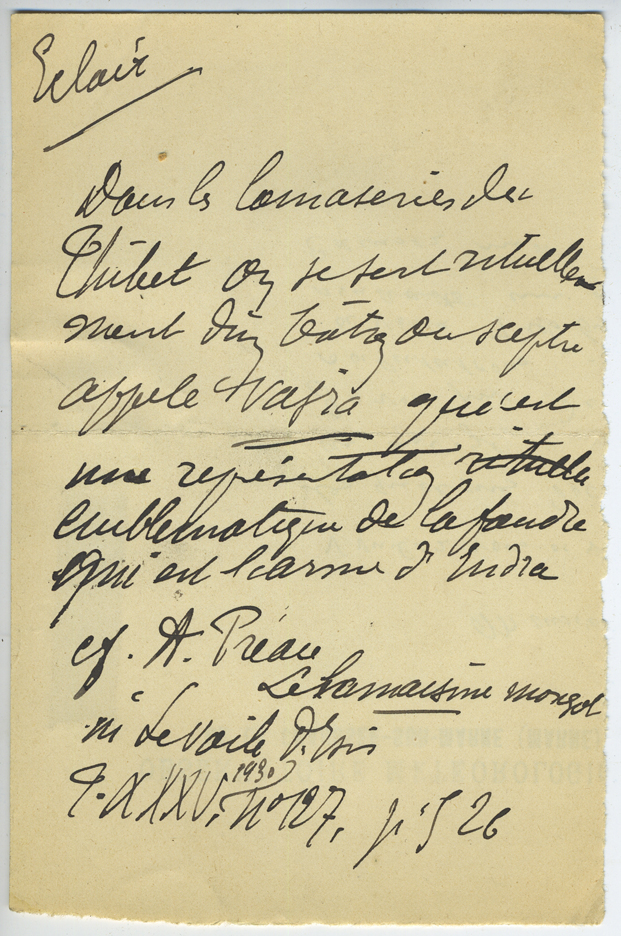 Eclair
Dans les lamaseries du
Thibet on se sert rituelle
ment d'un bâton ou sceptre
appelé Vajra qui est
une représentation rituelle
emblematique de la foudre
qui est l'arme d'Indra
cf. A. Préau
Le Lamaisme mongol
in Le Voile d'Isis
T. XXXV, 1930 n° 127, p. 526